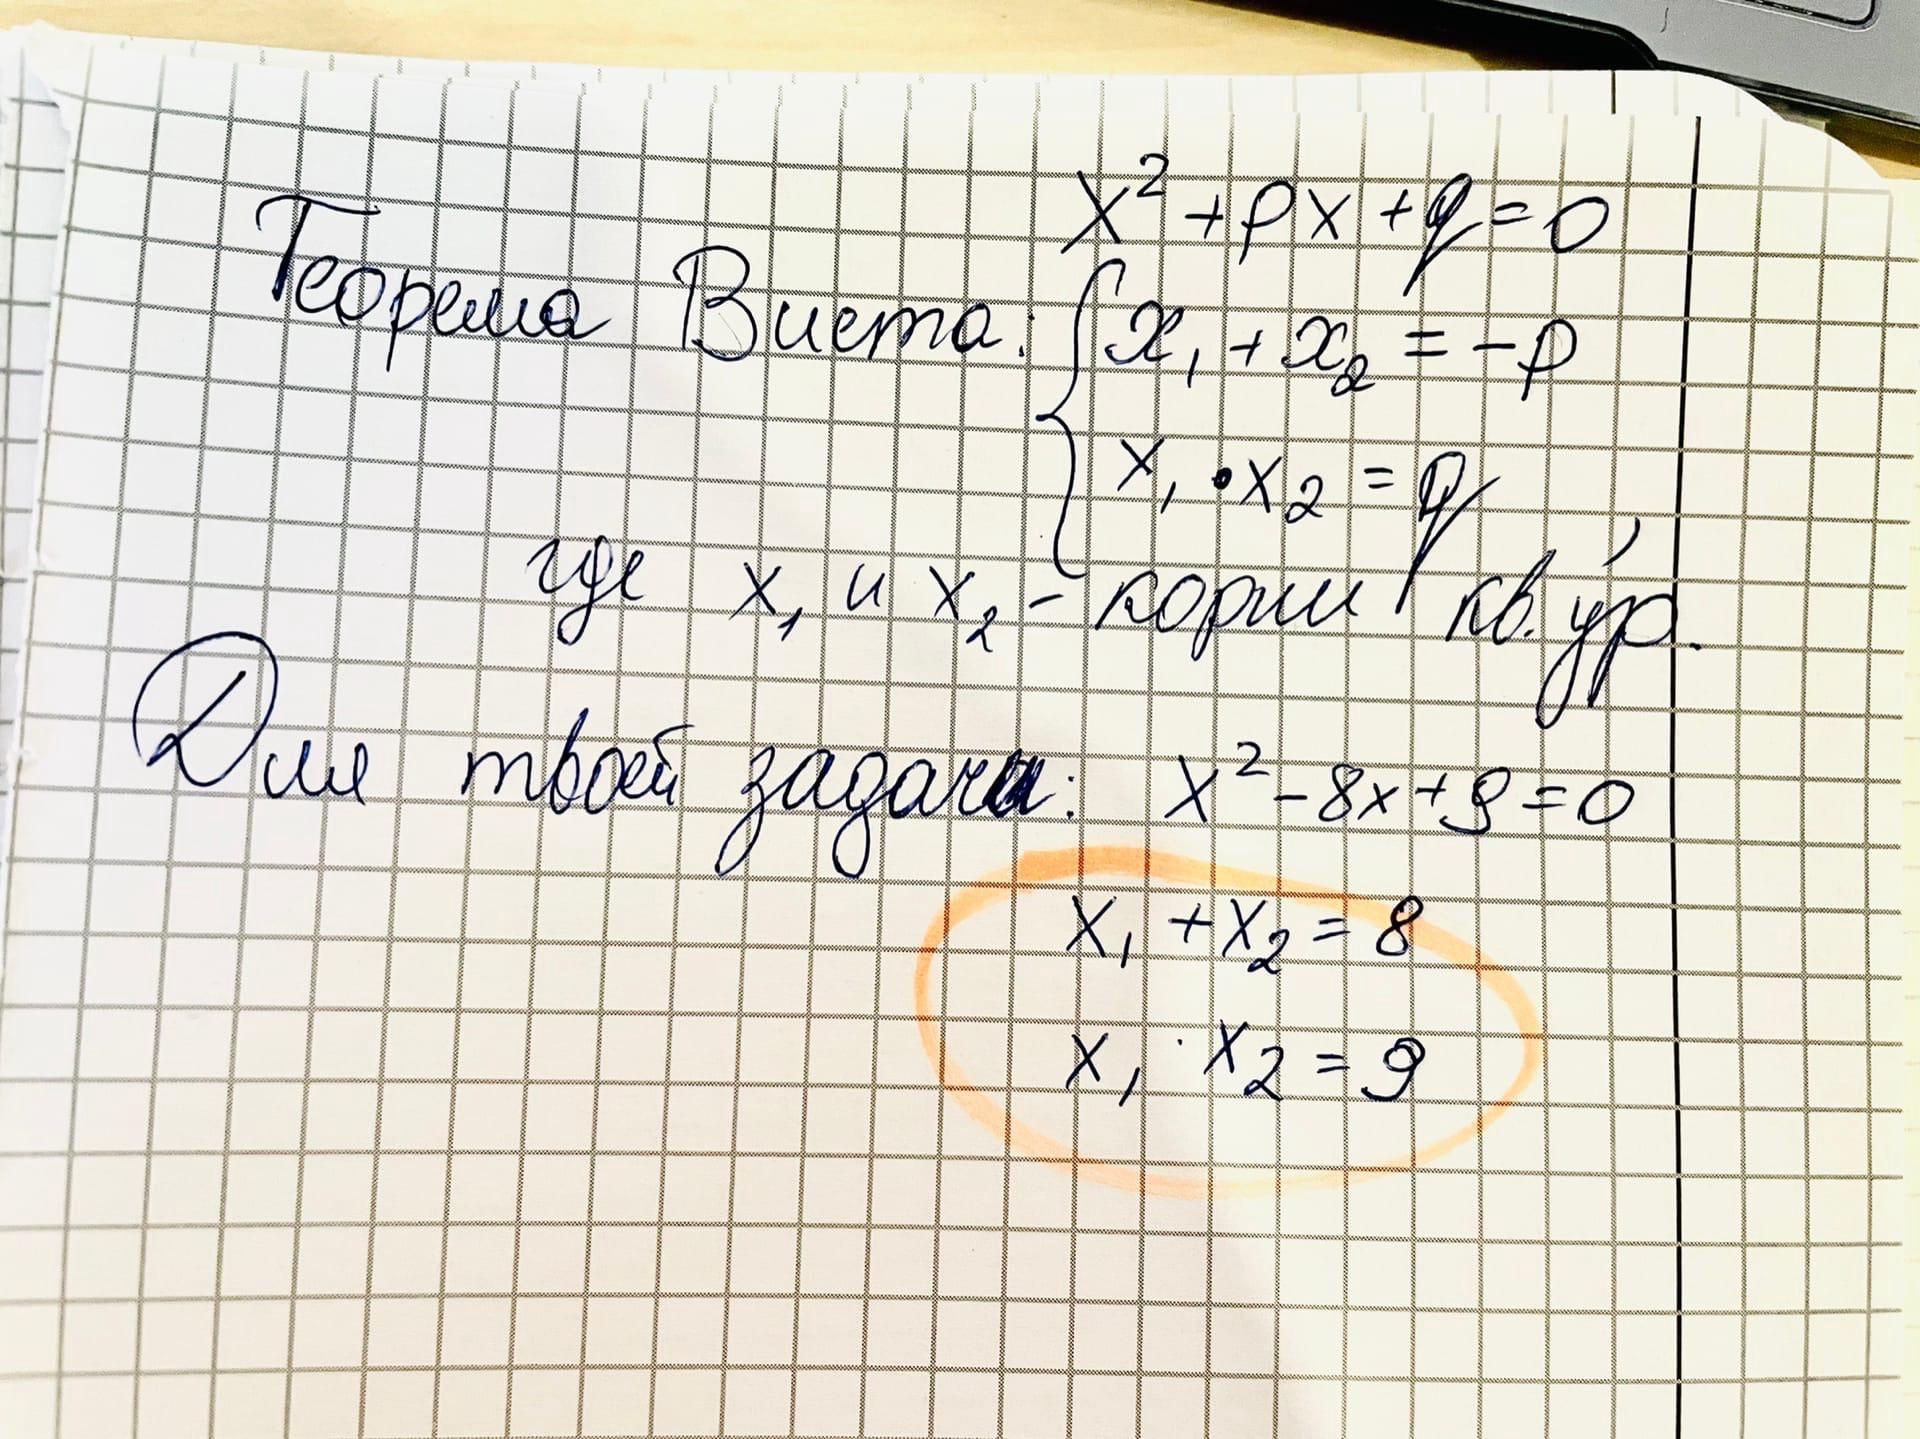 x² + px + q = 0
Теорема Виета: { x₁ + x₂ = -p
x₁ • x₂ = q
где x₁ и x₂ - корни кв. ур.
Для твоей задачи: x² - 8x + 9 = 0
x₁ + x₂ = 8
x₁ · x₂ = 9